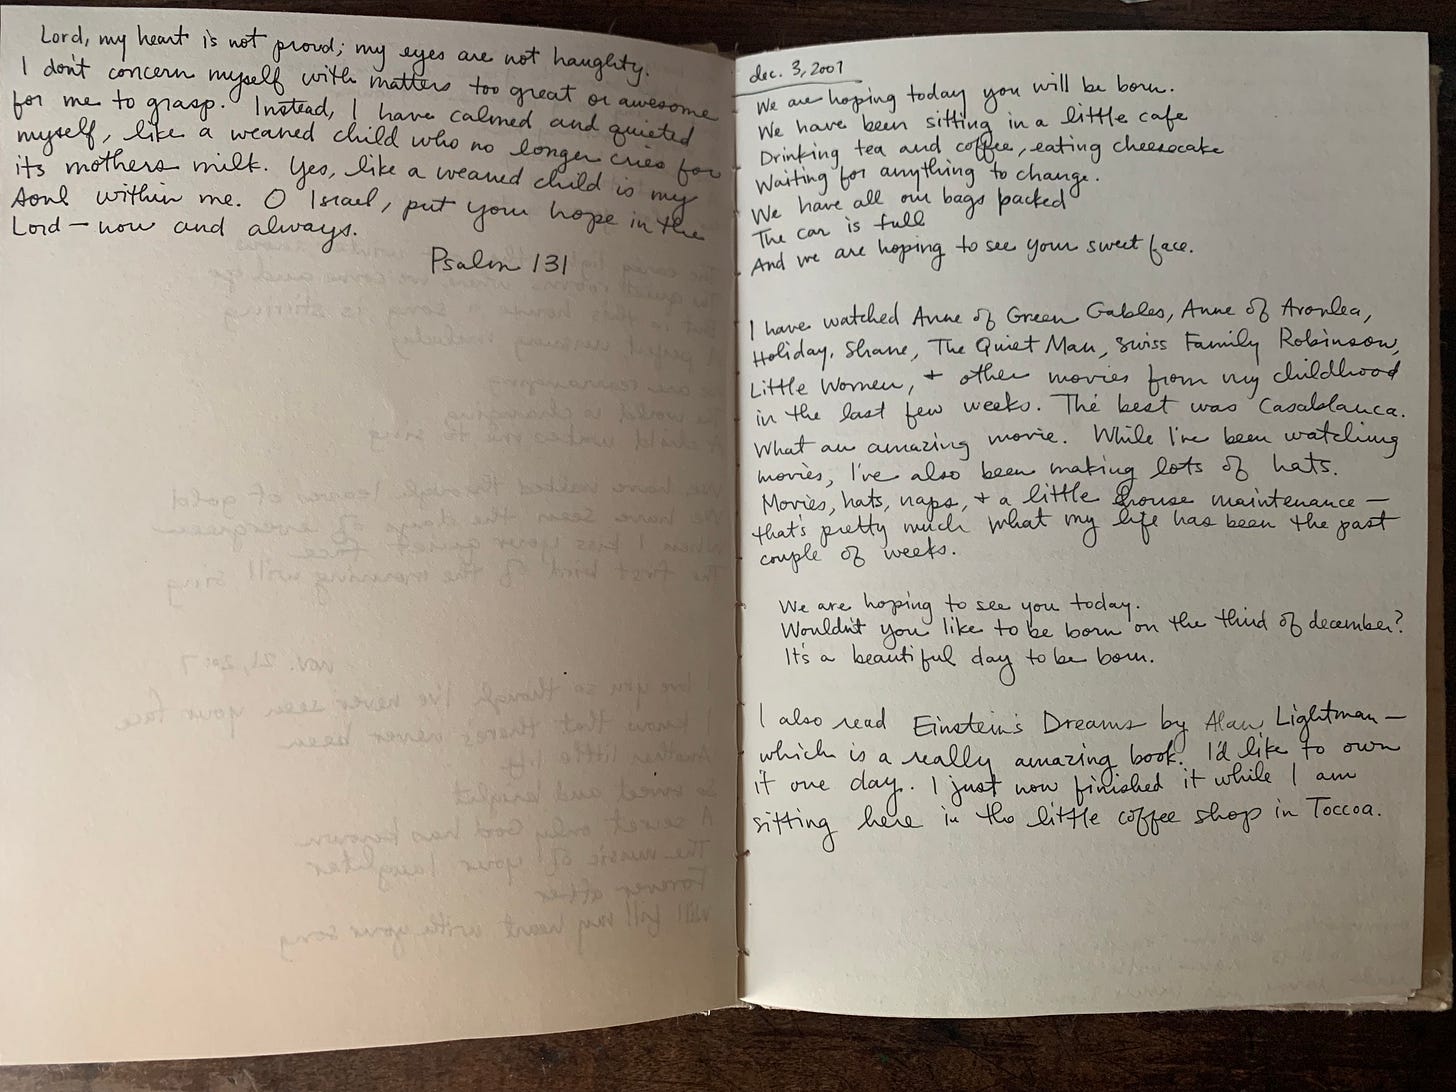 Lord, my heart is not proud; my eyes are not haughty.
I don't concern myself with matters too great or awesome
for me to grasp. Instead, I have calmed and quieted
myself, like a weaned child who no longer cries for
its mothers milk. Yes, like a weaned child is my
soul within me. O Israel, put your hope in the
Lord — now and always.
Psalm 131
nov. 21, 2007
I love you so though I've never seen your face
I know that there's never been
Another little life
So sweet and bright
A secret only God has known
The music of your laughter
Forever after
Will fill my heart with your song
dec. 3, 2007
We are hoping today you will be born.
We have been sitting in a little cafe
Drinking tea and coffee, eating cheesecake
Waiting for anything to change.
We have all our bags packed
The car is full
And we are hoping to see your sweet face.
I have watched Anne of Green Gables, Anne of Avonlea,
Holiday, Shane, The Quiet Man, Swiss Family Robinson,
Little Women, + other movies from my childhood
in the last few weeks. The best was Casablanca.
What an amazing movie. While I've been watching
movies, I've also been making lots of hats.
Movies, hats, naps, + a little house maintenance —
that's pretty much what my life has been the past
couple of weeks.
We are hoping to see you today.
Wouldn't you like to be born on the third of december?
It's a beautiful day to be born.
I also read Einstein's Dreams by Alan Lightman —
which is a really amazing book. I'd like to own
it one day. I just now finished it while I am
sitting here in the little coffee shop in Toccoa.